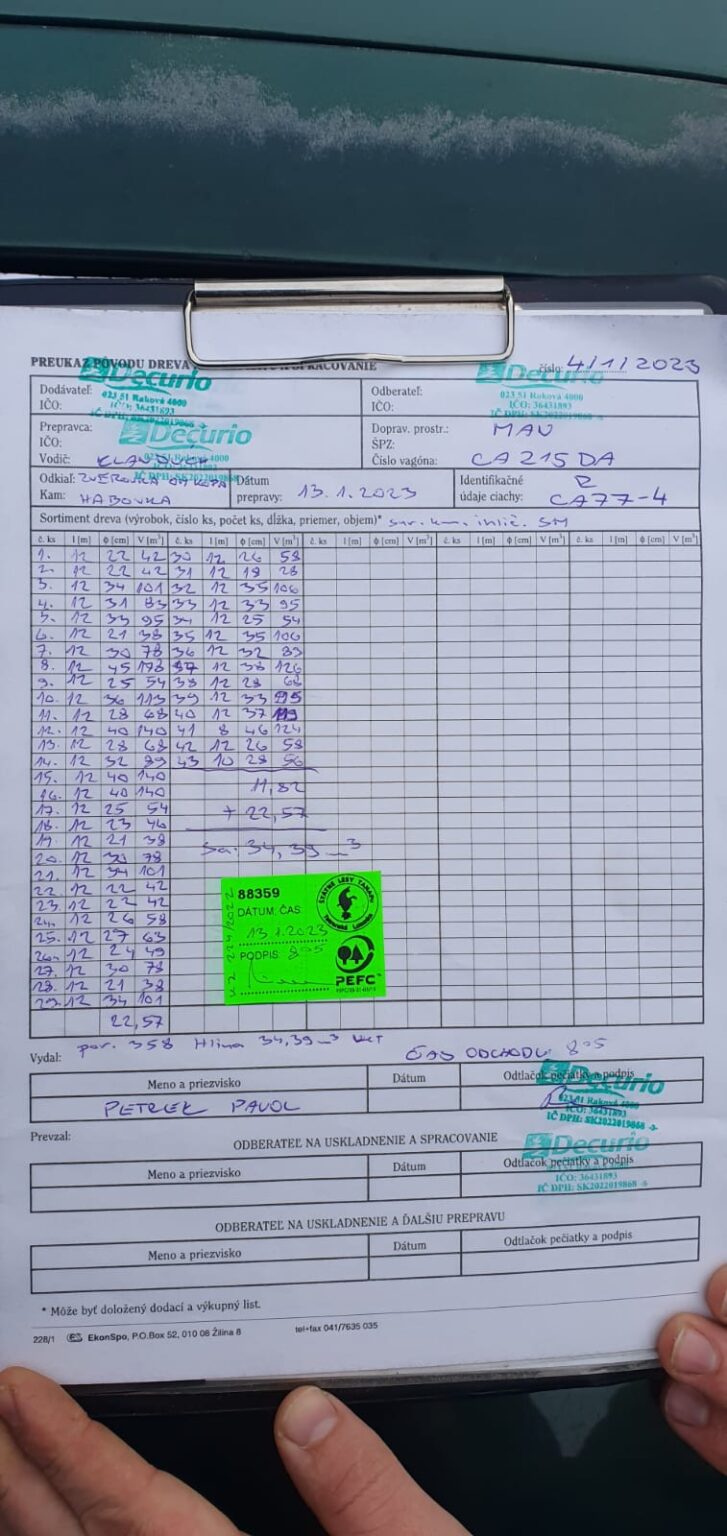 PREUKAZ PÔVODU DREVA
číslo 4/1/2023
Decurio
023 51 Raková 4000
IČO: 36431893
IČ DPH: SK2022019868
Decurio
023 51 Raková 4000
IČO: 36431893
IČ DPH: SK2022019868
Dodávateľ:
IČO:
Odberateľ:
IČO:
Prepravca:
IČO:
Vodič:
Decurio
023 51 Raková 4000
IČO: 36431893
IČ DPH: SK2022019868
Doprav. prostr.: MAN
ŠPZ:
Číslo vagóna: CA 215 DA
Odkiaľ: ZVEROVKA
Kam: HABOVKA
Dátum
prepravy: 13.1.2023
Identifikačné
údaje ciachy: CA77-4
Sortiment dreva (výrobok, číslo ks, počet ks, dĺžka, priemer, objem)* SM
č. ks l [m] ϕ [cm] V [m³] č. ks l [m] ϕ [cm] V [m³] č. ks l [m] ϕ [cm] V [m³] č. ks l [m] ϕ [cm] V [m³] č. ks l [m] ϕ [cm] V [m³]
1. 12 22 42 30 12 26 58
2. 12 22 42 31 12 18 28
3. 12 34 101 32 12 35 106
4. 12 31 83 33 12 33 95
5. 12 33 95 34 12 25 54
6. 12 21 38 35 12 35 106
7. 12 30 78 36 12 32 89
8. 12 45 178 37 12 38 126
9. 12 25 54 38 12 28 68
10. 12 36 113 39 12 33 95
11. 12 28 68 40 12 37 119
12. 12 40 140 41 8 46 124
13. 12 28 68 42 12 26 58
14. 12 32 89 43 10 28 56
15. 12 40 140
16. 12 40 140 11,82
17. 12 25 54 + 22,57
18. 12 23 46
19. 12 21 38
20. 12 30 78 Sa. 34,39 m3
21. 12 34 101
22. 12 22 42
23. 12 22 42
24. 12 26 58
25. 12 27 63
26. 12 24 49
27. 12 30 78
28. 12 21 38
29. 12 34 101
22,57
88359
DÁTUM, ČAS
13.1.2023
PODPIS 805
224/2022
ŠTÁTNE LESY TANAPU
PEFC
por. 358 Hlina 34,39 m3
ČAS ODCHODU 805
Vydal:
Meno a priezvisko Dátum Odtlačok pečiatky a podpis
PETREK PAVOL
Decurio
023 51 Raková 4000
IČO: 36431893
IČ DPH: SK2022019868
Prevzal:
ODBERATEĽ NA USKLADNENIE A SPRACOVANIE
Meno a priezvisko Dátum Odtlačok pečiatky a podpis
Decurio
IČO: 36431893
IČ DPH: SK2022019868
ODBERATEĽ NA USKLADNENIE A ĎALŠIU PREPRAVU
Meno a priezvisko Dátum Odtlačok pečiatky a podpis
* Môže byť doložený dodací a výkupný list.
228/1 EkonSpo, P.O.Box 52, 010 08 Žilina 8 tel+fax 041/7635 035